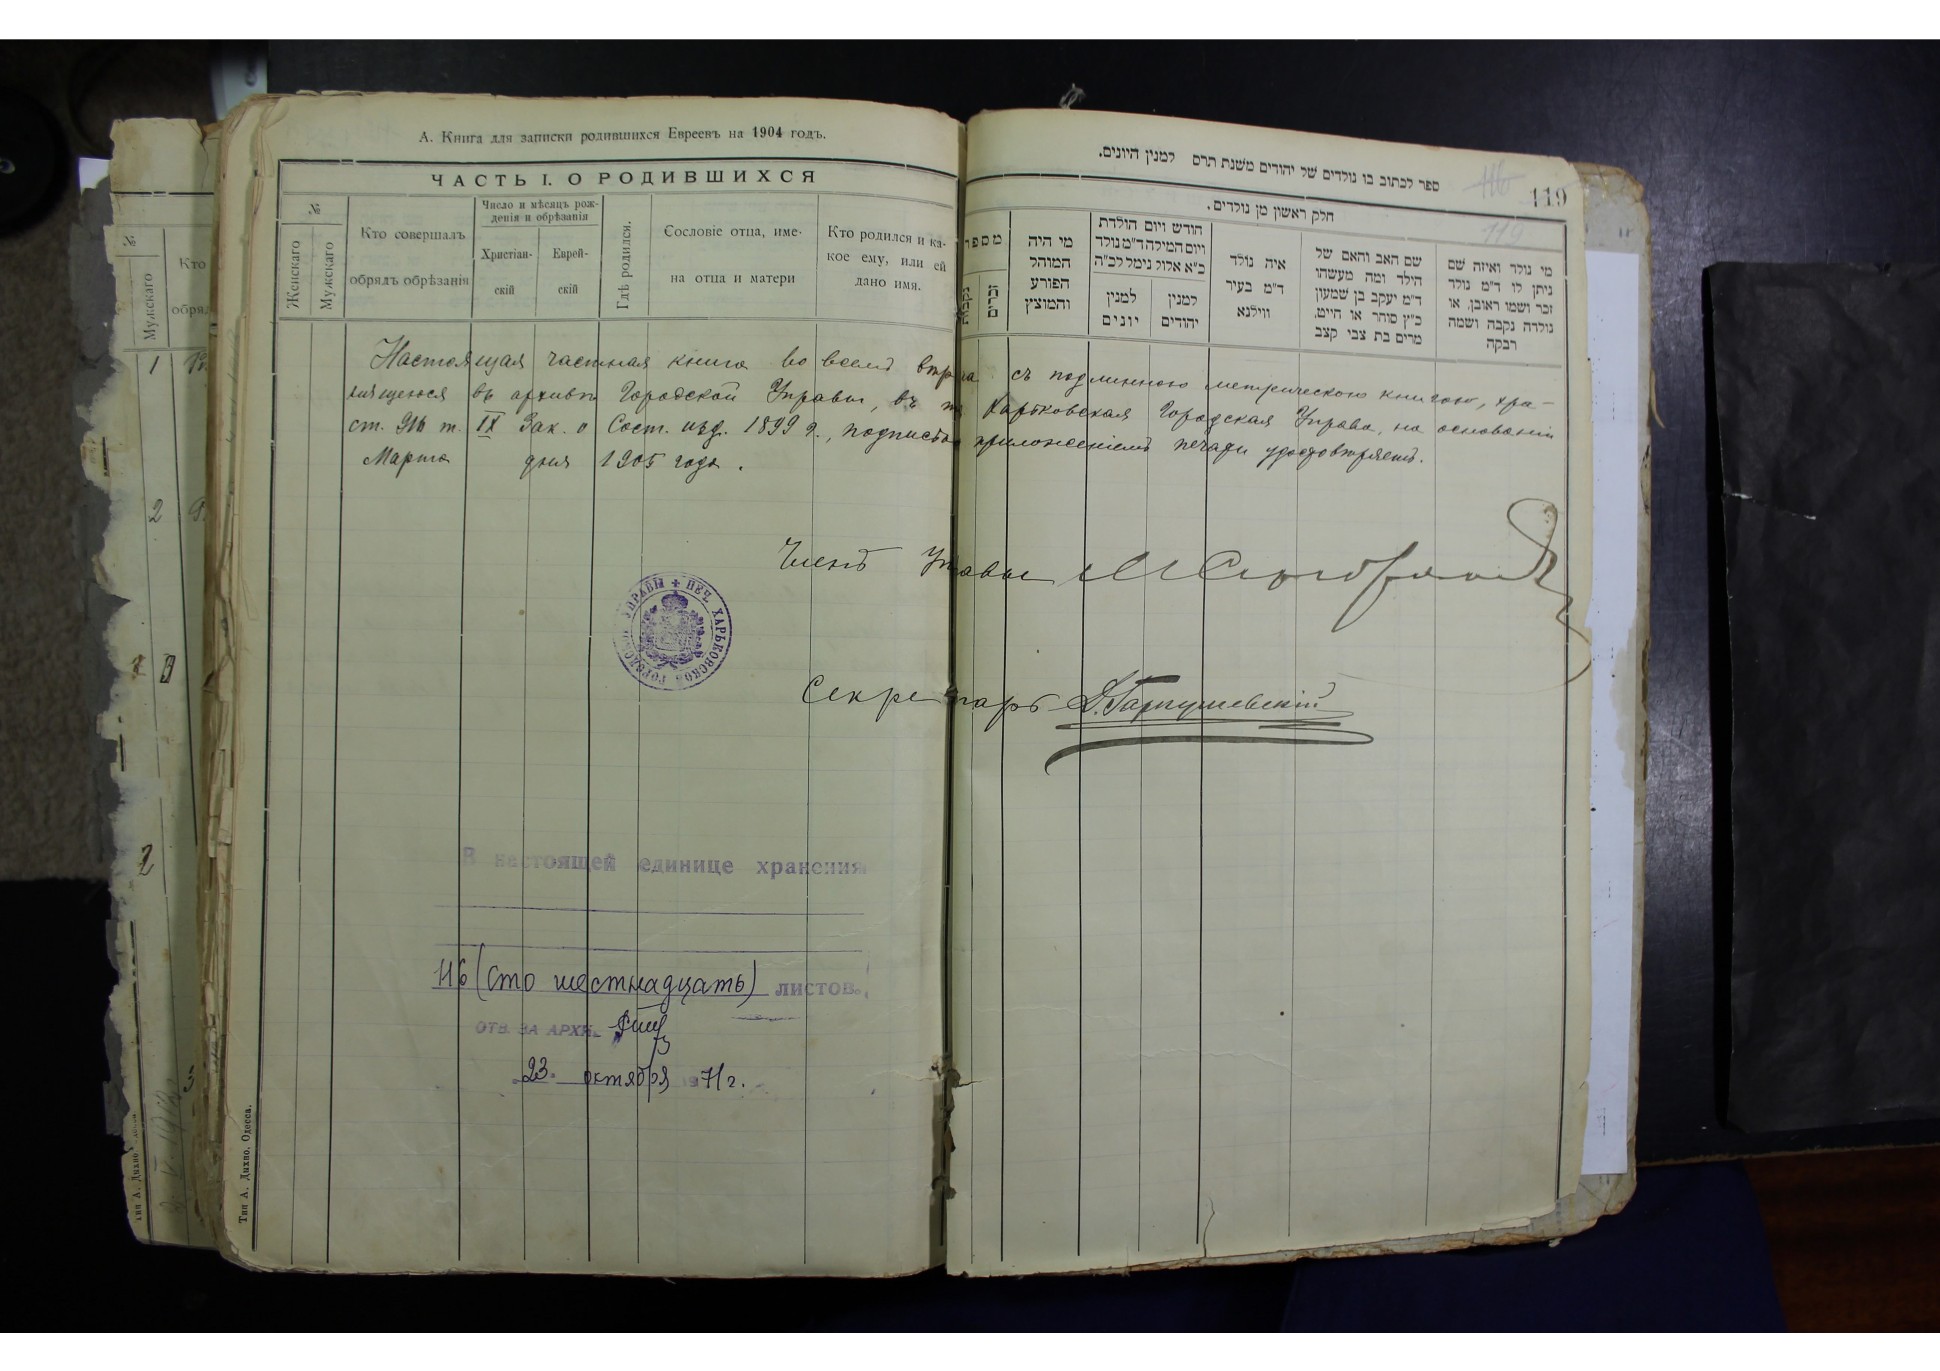 А. Книга для записки родившихся Евреевъ на 1904 годъ.
ЧАСТЬ I. О РОДИВШИХСЯ
№
Женскаго
Мужскаго
Кто совершалъ
обрядъ обрѣзанія
Число и мѣсяцъ рож-
денія и обрѣзанія
Христіан-
скій
Еврей-
скій
Гдѣ родился.
Сословіе отца, име-
на отца и матери
Кто родился и ка-
кое ему, или ей
дано имя.
ספר לכתוב בו נולדים של יהודים משנת תרס למנין היונים.
116
119
119
חלק ראשון מן נולדים.
מספר
נקבות
זכרים
מי היה
המוהל
הפורע
והמוצץ
חודש ויום הולדת
ויום המילה ד"מ נולד
כ"א אלול נימל לכ"ה
למנין
יונים
למנין
יהודים
איה נולד
ד"מ בעיר
ווילנא
שם האב והאם של
הילד ומה מעשהו
ד"מ יעקב בן שמעון
כ"ץ סוחר או חייט,
מרים בת צבי קצב
מי נולד ואיזה שם
ניתן לו ד"מ נולד
זכר ושמו ראובן, או
נולדה נקבה ושמה
רבקה
Настоящая частная книга во всемъ вѣрна съ подлинною метрическою книгою, хра-
нящеюся въ архивѣ Городской Управы, въ Харьковская Городская Управа, на основаніи
ст. 916 т. IX Зак. о Сост. изд. 1899 г., подписью приложеніемъ печати удостовѣряетъ.
Марта дня 1905 года.
Членъ Управы
ПЕЧ. ХАРЬКОВСКОЙ ГОРОДСКОЙ УПРАВЫ
Секретарь
В настоящей единице хранения
116 (сто шестнадцать) листов.
ОТВ. ЗА АРХИВ
23. октября 1971 г.
Тип. А. Дихно. Одесса.
№
Мужскаго
Кто
обряд
1
2
2